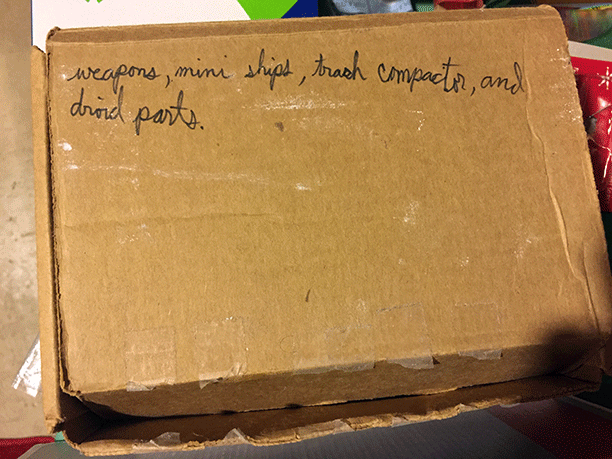 weapons, mini ships, trash compactor, and
droid parts.